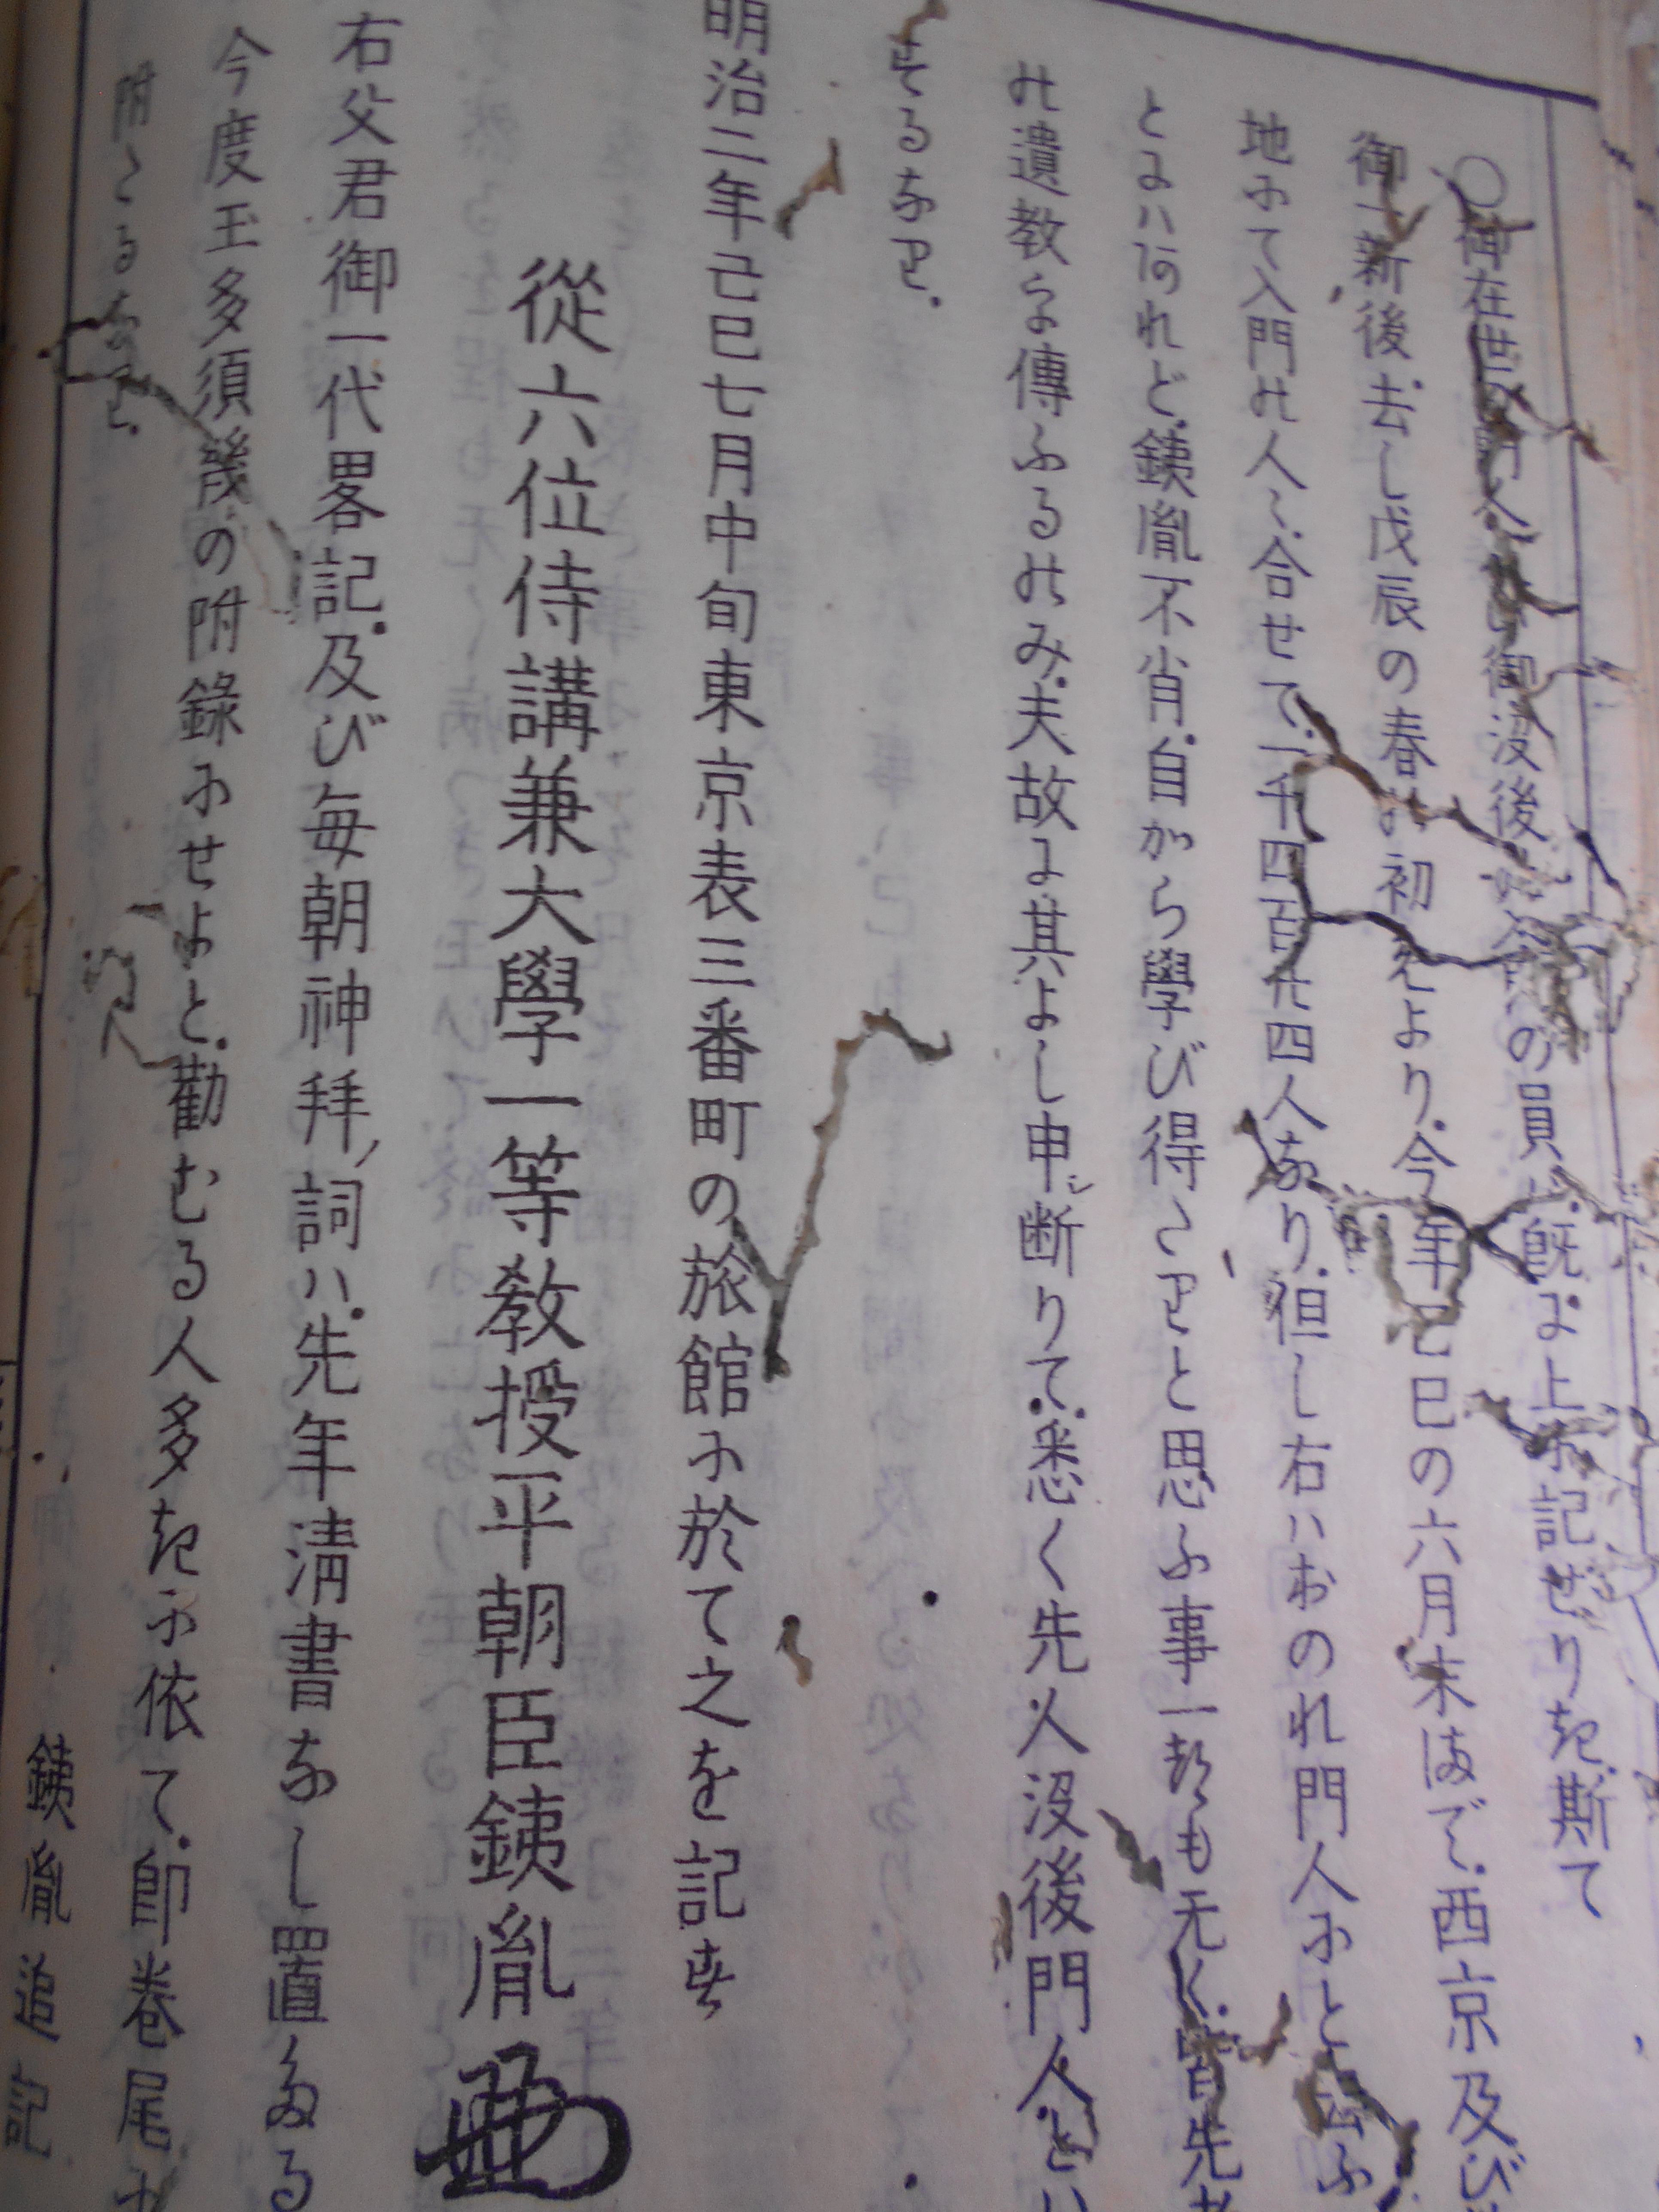 ○御在世の門人及び御没後の入門の員は既に上に記せりき斯て
御一新後去し戊辰の春の初えより今年己巳の六月末まで西京及び
地にて入門の人々合せて一千四百九十四人なり但し右ハおのれ門人にと云ふ
とにハあれど銕胤不肖自から學び得たりと思ふ事一部も无く皆先考
の遺教を傳ふるのみ夫故に其よし申シ断りて悉く先人没後門人とハ
するなり
明治二年己巳七月中旬東京表三番町の旅館に於て之を記す
從六位侍講兼大學一等教授平朝臣銕胤
右父君御一代畧記及び毎朝神拜ノ詞ハ先年淸書なし置たる
今度玉多須幾の附錄にせよと勸むる人多きに依て卽卷尾に
附たるなり
銕胤追記